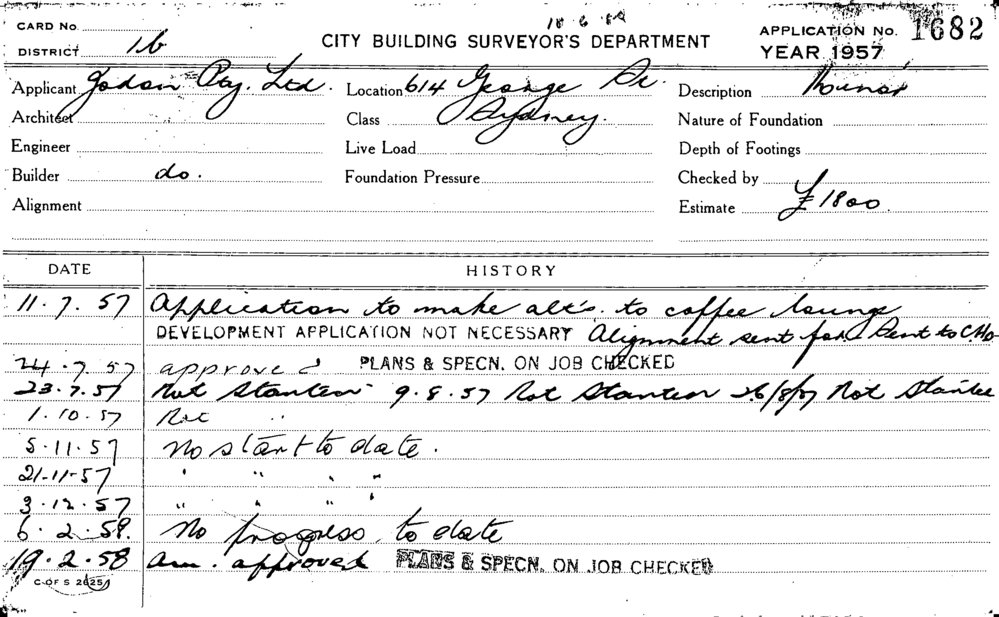 CARD No.
DISTRICT 16
CITY BUILDING SURVEYOR'S DEPARTMENT
APPLICATION No. 1682
YEAR 1957
Applicant Jodon Pty. Ltd. Location 614 George St. Description Minor
Architect Class Sydney. Nature of Foundation
Engineer Live Load Depth of Footings
Builder do. Foundation Pressure Checked by
Alignment Estimate £1800.
DATE HISTORY
11.7.57 Application to make alt's. to coffee loung
DEVELOPMENT APPLICATION NOT NECESSARY Alignment sent for. Sent to C.H.O
24.7.57 approved PLANS & SPECN. ON JOB CHECKED
23.7.57 Not Started 9.8.57 Not Started 26/8/57 Not Started
1.10.57 Not "
5.11.57 No start to date.
21.11.57 " " " "
3.12.57 " " " "
6.2.58. No progress to date
19.2.58 am. approved PLANS & SPECN. ON JOB CHECKED
C OF S